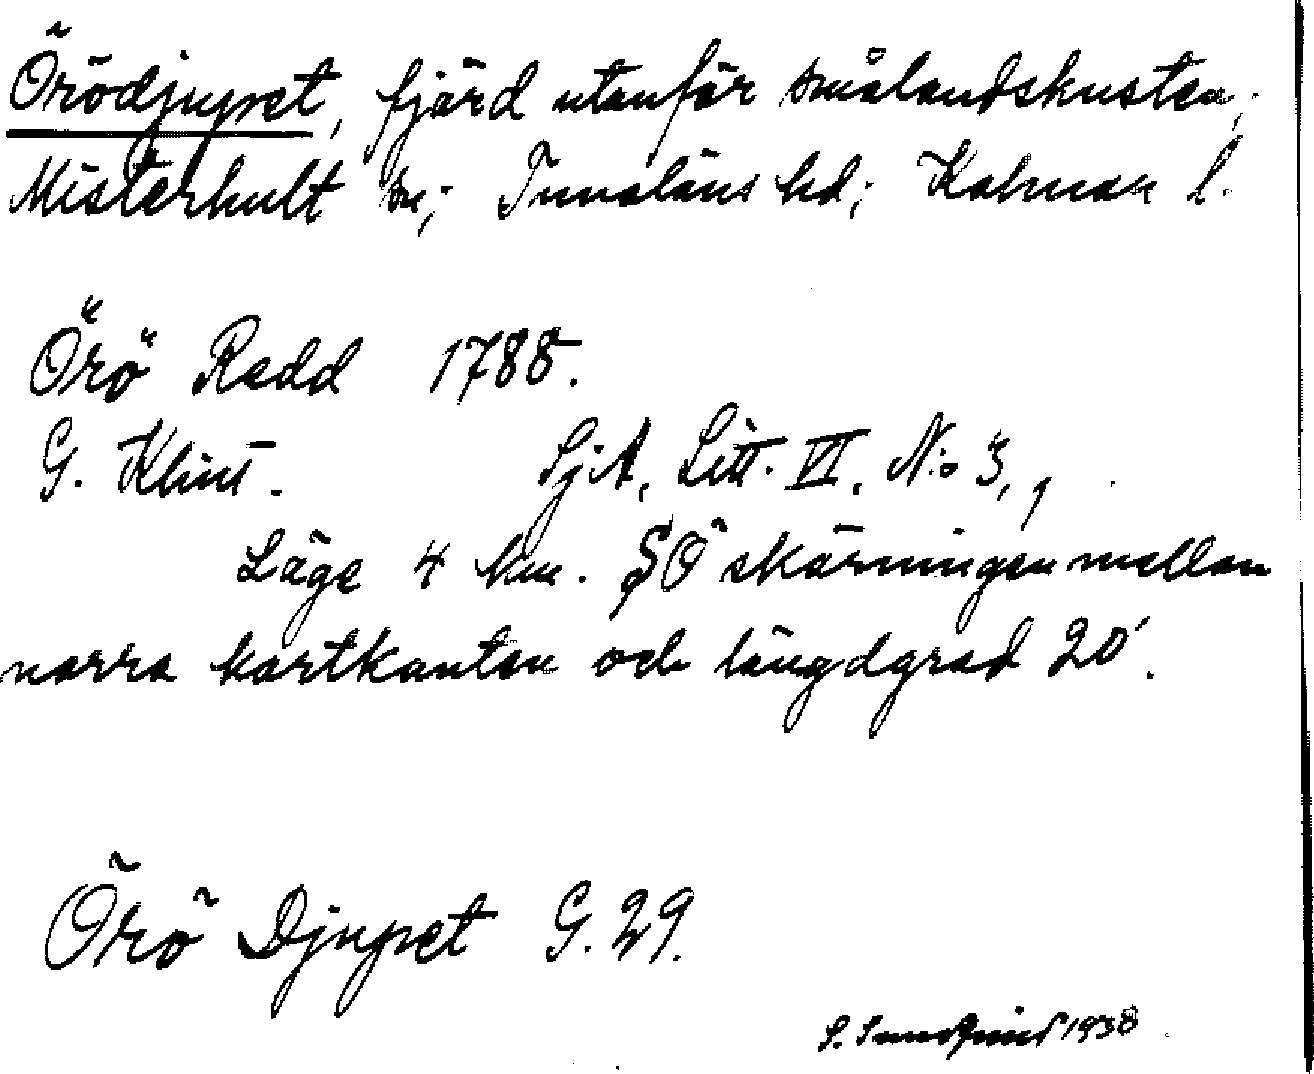 Örödjupet, fjärd utanför smålandskusten;
Misterhult sn; Tunaläns hd; Kalmar l.
Örö Redd 1788.
G. Klint. SjA, Litt. VI, N:o 3, 1
Läge 4 km. SÖ skärningen mellan
norra kartkanten och längdgrad 20'.
Örö Djupet G. 29.
S. Sundqvist 1938